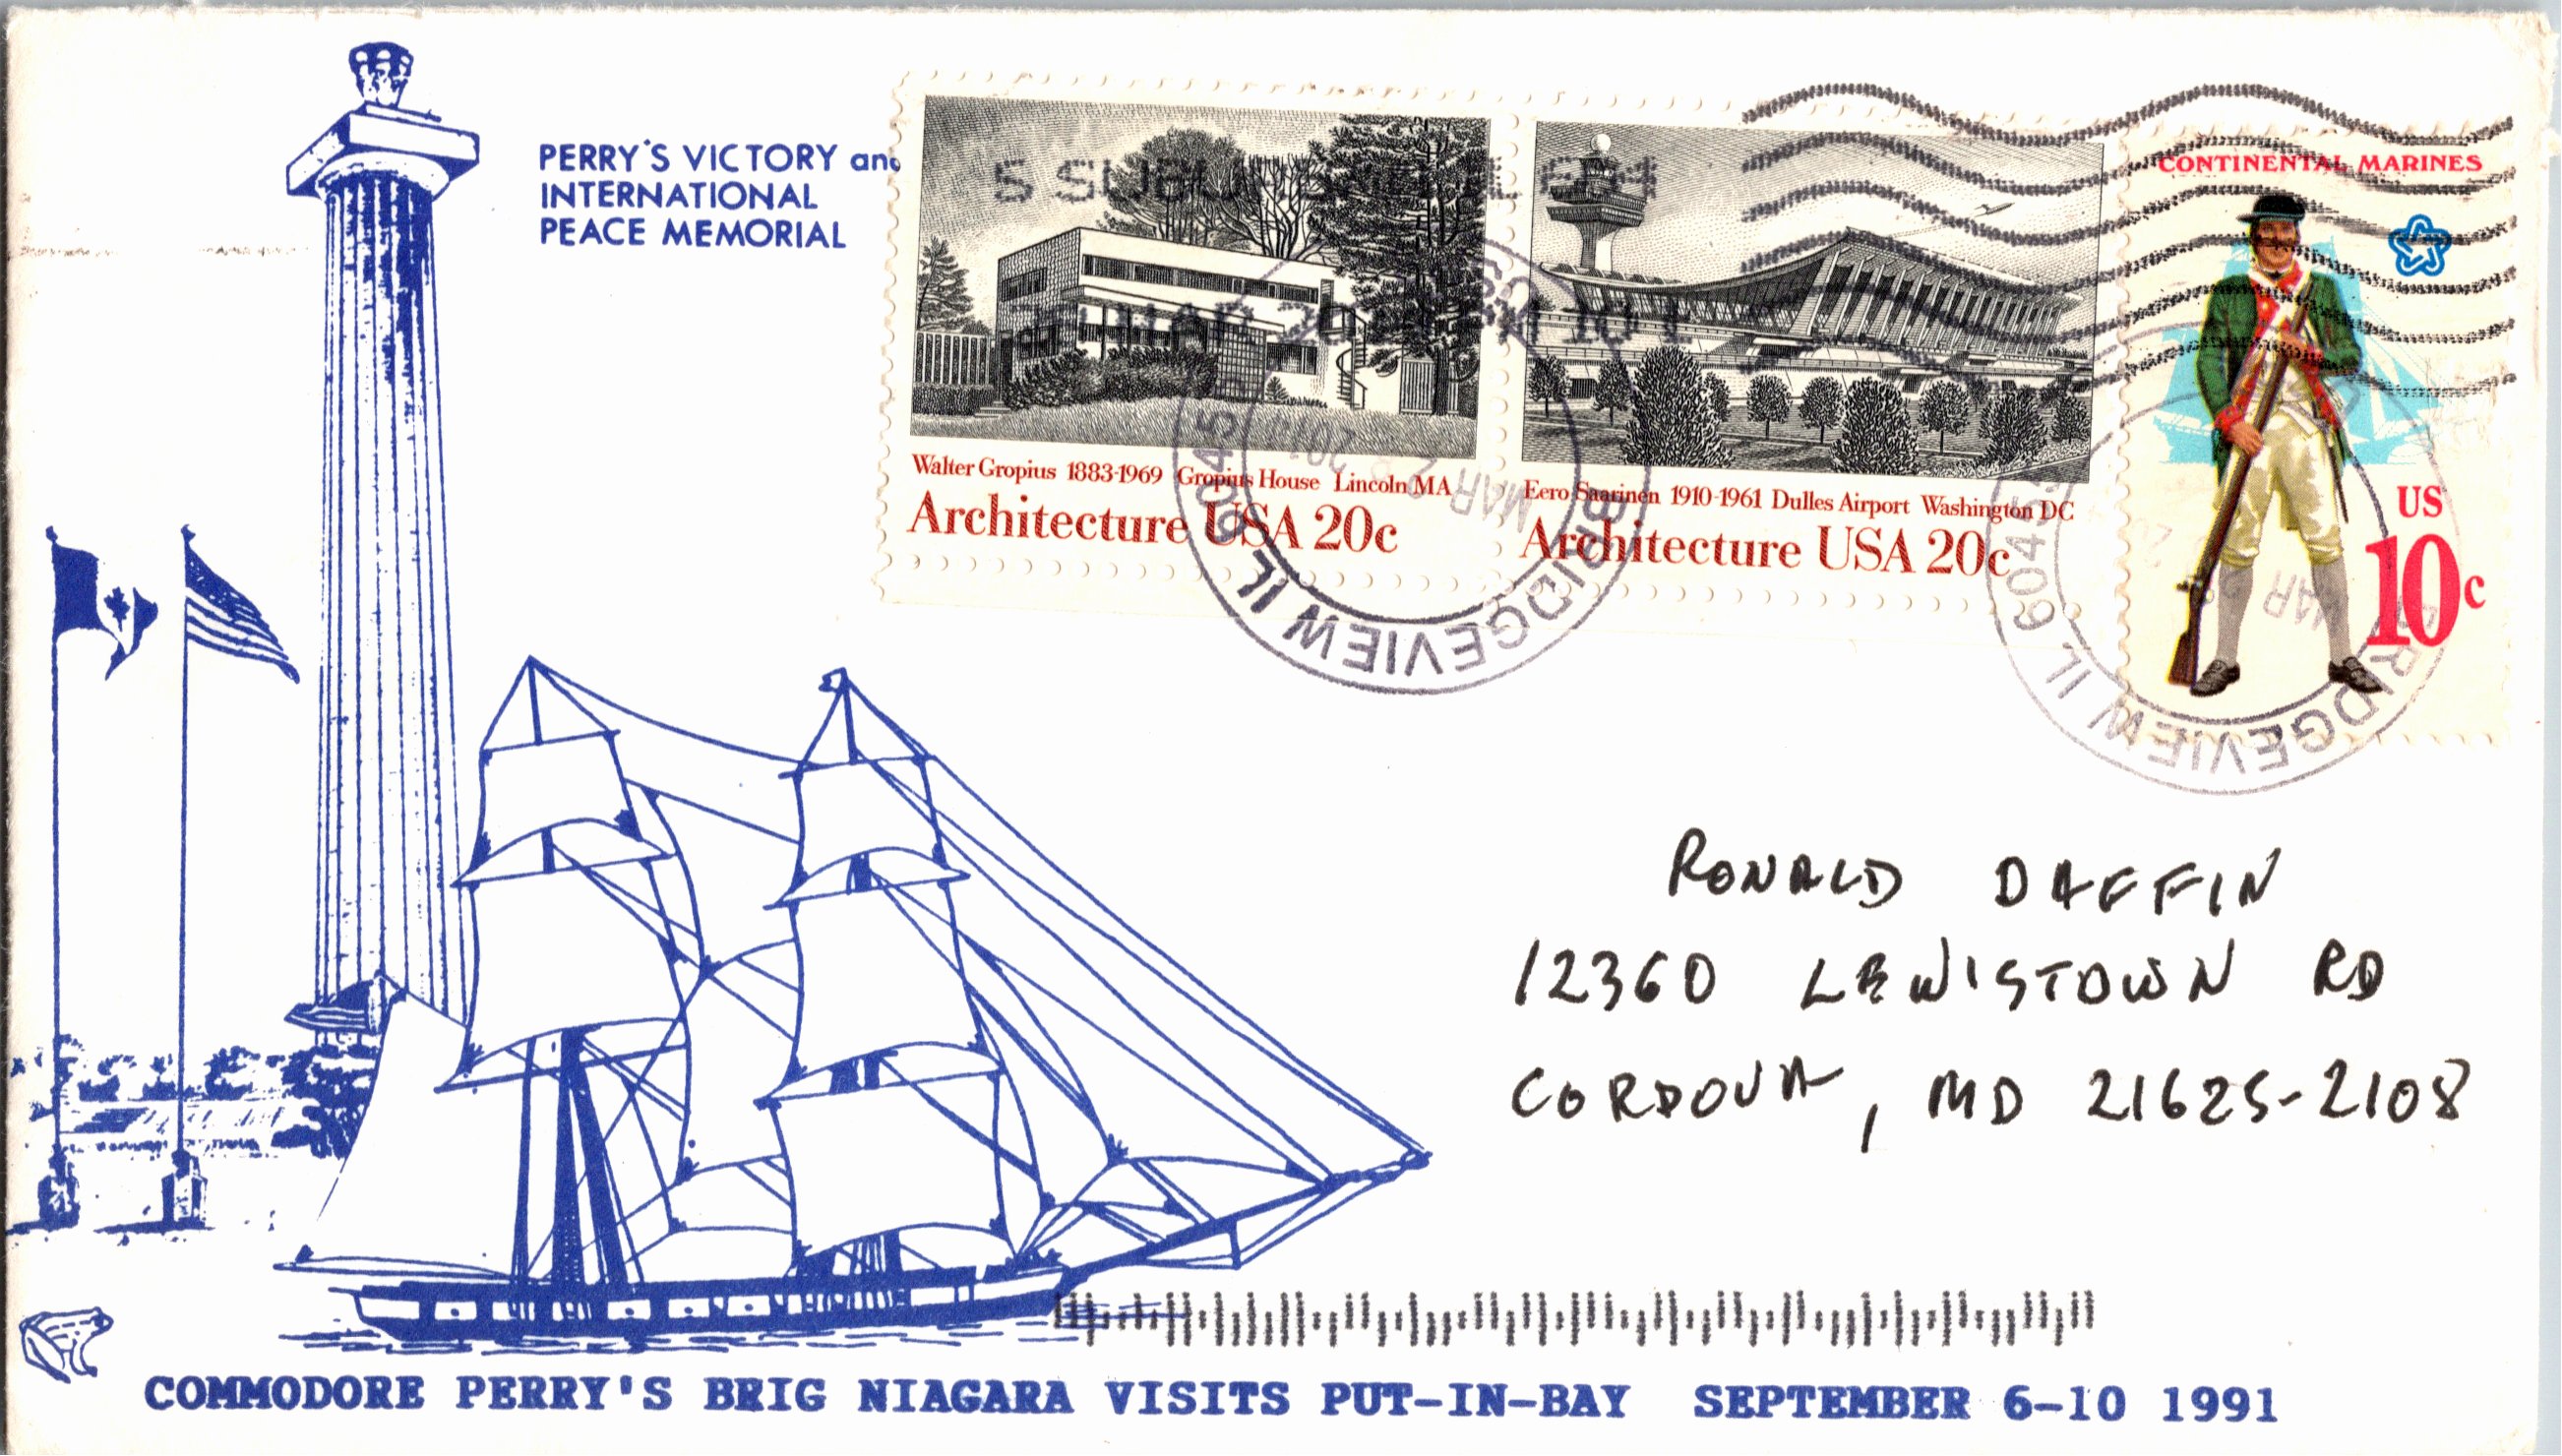 PERRY'S VICTORY and
INTERNATIONAL
PEACE MEMORIAL
CONTINENTAL MARINES
US
10c
Walter Gropius 1883-1969 Gropius House Lincoln MA
Architecture USA 20c
Eero Saarinen 1910-1961 Dulles Airport Washington DC
Architecture USA 20c
S SUBURBAN
BRIDGEVIEW IL 60455
MAR 2
BRIDGEVIEW IL 60455
MAR
RONALD DAFFIN
12360 LEWISTOWN RD
CORDOVA, MD 21625-2108
COMMODORE PERRY'S BRIG NIAGARA VISITS PUT-IN-BAY SEPTEMBER 6-10 1991